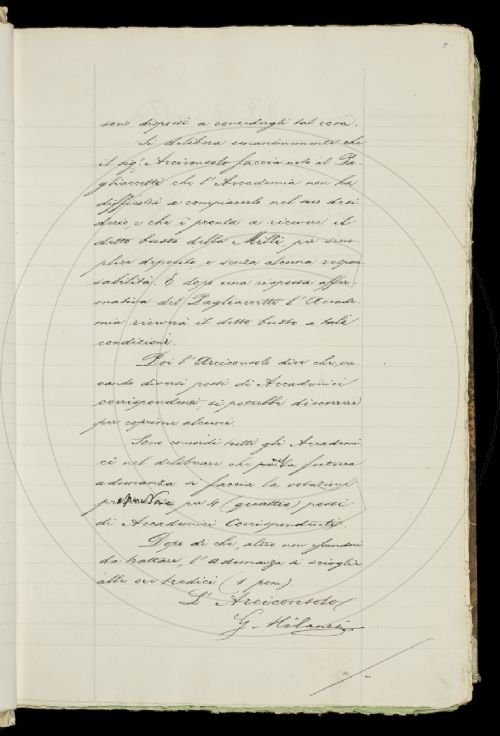 5
sono disposti a concedergli tal cosa.
Si delibera unanimemente che
il Sig. Arciconsolo faccia noto al Pa-
gliaccetti che l'Accademia non ha
difficoltà a compiacerlo nel suo desi
derio, e che è pronta a ricevere il
detto busto della Milli per sem-
plice deposito, e senza alcuna respon
sabilità. E dopo una risposta affir-
mativa del Pagliaccetti l'Accade-
mia riceverà il detto busto a tali
condizioni.
Poi l'Arciconsolo dice che, va-
cando diversi posti di Accademici
corrispondenti, si potrebbe discorrere
per coprirne alcuni.
Sono concordi tutti gli Accademi
ci nel deliberare che nella futura
adunanza si faccia la votazione
per 4 (quattro) posti
di Accademici Corrispondenti.
Dopo di che, altro non essendovi
da trattare, l'adunanza si scioglie
alle ore tredici (1 pom)
L'Arciconsolo
G. Milanesi